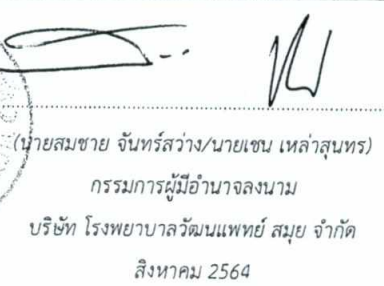 (นายสมชาย จันทร์สว่าง/นายเชน เหล่าสุนทร)
กรรมการผู้มีอำนาจลงนาม
บริษัท โรงพยาบาลวัฒนแพทย์ สมุย จำกัด
สิงหาคม 2564